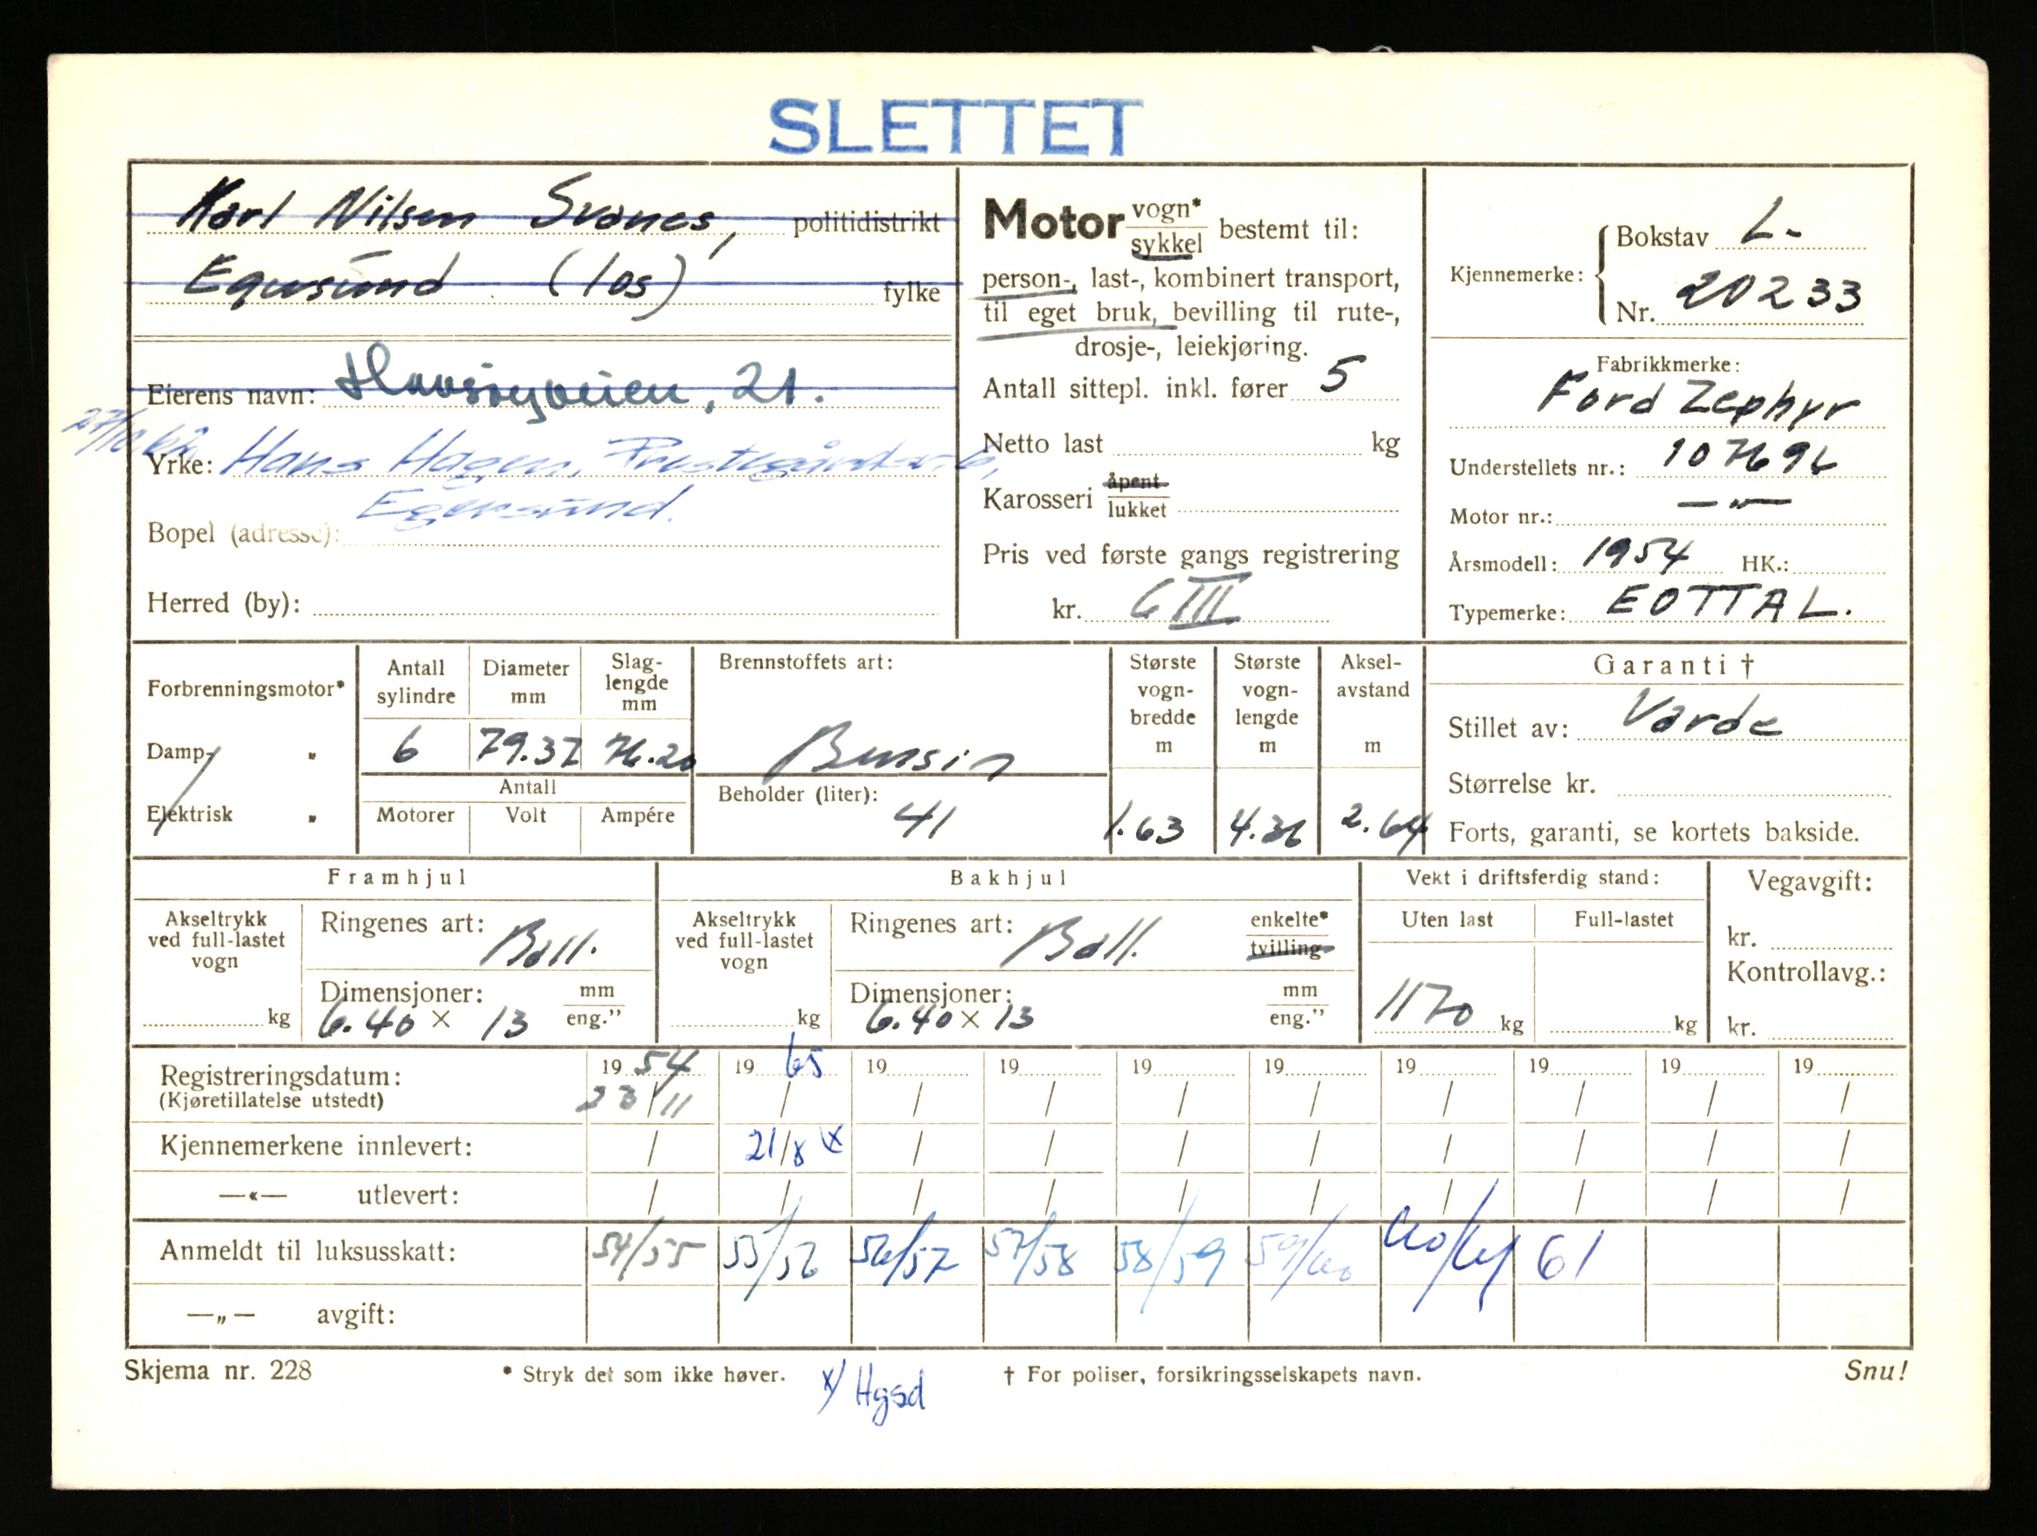 SLETTET
Karl Nilsen Svanes, politidistrikt
Egersund (los) fylke
Eierens navn: Havsøyveien, 21.
27/10 62 Yrke: Hans Hagen, Prestegårdsv. 6,
Egersund.
Bopel (adresse):
Herred (by):
Motor vogn* sykkel bestemt til:
person-, last-, kombinert transport,
til eget bruk, bevilling til rute-,
drosje-, leiekjøring.
Antall sittepl. inkl. fører 5
Netto last kg
Karosseri åpent lukket
Pris ved første gangs registrering
kr. G III
Kjennemerke: Bokstav L-
Nr. 20233
Fabrikkmerke:
Ford Zephyr
Understellets nr.: 107696
Motor nr.: — " —
Årsmodell: 1954 HK.:
Typemerke: EOTTAL.
Forbrenningsmotor*
Damp- "
Elektrisk "
Antall sylindre Diameter mm Slag-lengde mm
6 79.37 76.20
Antall
Motorer Volt Ampére
Brennstoffets art:
Bensin
Beholder (liter):
41
Største vogn-bredde m
1.63
Største vogn-lengde m
4.36
Aksel-avstand m
2.64
Garanti †
Stillet av: Varde
Størrelse kr.
Forts, garanti, se kortets bakside.
Framhjul
Akseltrykk ved full-lastet vogn
kg
Ringenes art: Ball.
Dimensjoner: mm eng."
6.40 × 13
Bakhjul
Akseltrykk ved full-lastet vogn
kg
Ringenes art: Ball. enkelte* tvilling
Dimensjoner: mm eng."
6.40 × 13
Vekt i driftsferdig stand:
Uten last Full-lastet
1170 kg kg
Vegavgift:
kr.
Kontrollavg.:
kr.
Registreringsdatum: 19 54 19 65 19 19 19 19 19 19 19 19
(Kjøretillatelse utstedt) 23/11 / / / / / / / / /
Kjennemerkene innlevert: / 21/8 x / / / / / / / /
—«— utlevert: / / / / / / / / / /
Anmeldt til luksusskatt: 54/55 55/56 56/57 57/58 58/59 59/60 60/61 61
—„— avgift:
Skjema nr. 228 * Stryk det som ikke høver. † For poliser, forsikringsselskapets navn. Snu!
x/ Hgsd